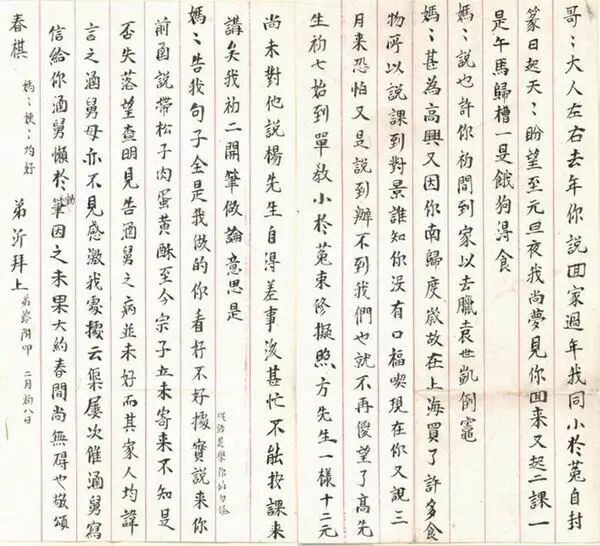 哥〻大人左右去年你說回家過年我同小於菟自封
篆日起天〻盼望至元旦夜我尚夢見你回来又起二課一
是午馬歸槽一是餓狗得食
媽〻說也許你初間到家以去臘袁世凱倒竈
媽〻甚為高興又因你南歸度歲故在上海買了許多食
物所以說課到對景誰知你沒有口福喫現在你又說三
月来恐怕又是說到辦不到我們也就不再傻望了高先
生初七始到單教小於菟束脩擬照方先生一樣十二元
尚未對他說楊先生自得差事後甚忙不能按課来
講矣我初二開筆做論意思是
媽〻告我句子全是我做的你看好不好據實說来你
語是學你的勿
前函說帶松子肉蛋黄酥至今宗子立未寄来不知是
否失落望查明見告涵舅之病並未好而其家人均諱
言之涵舅母亦不見感激我家據云屢次催涵舅寫
信給你涵舅懶於動筆因之未果大約春間尚無碍也敬頌
春棋 媽〻嫂〻均好 弟沂拜上
弟附叩 二月初八日